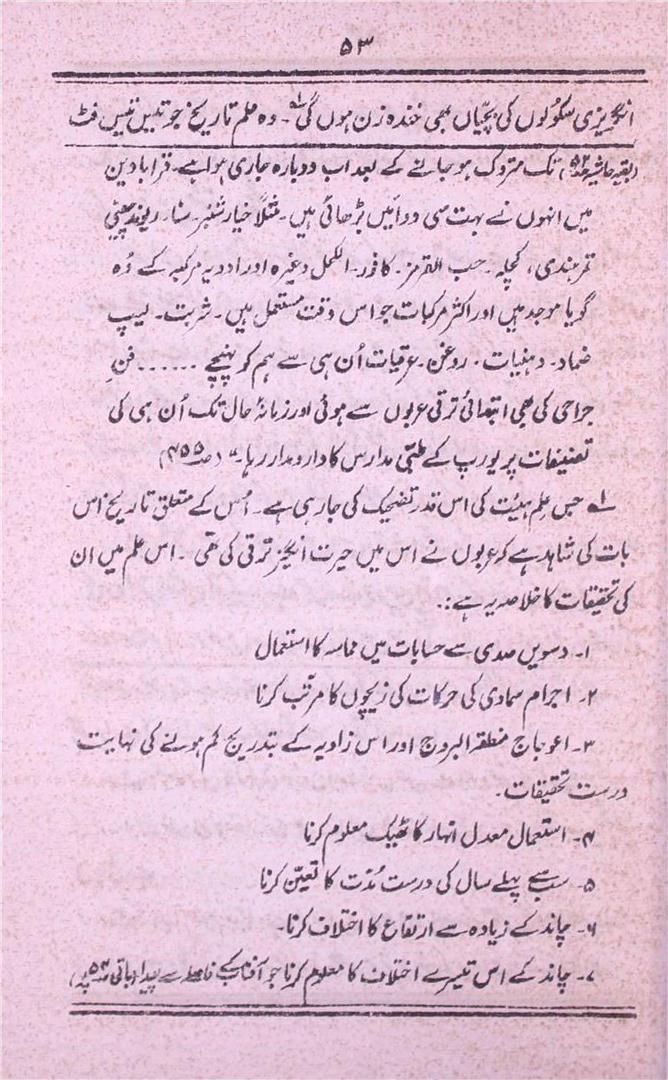 ۵۳
انگریزی سکولوں کی بچیاں بھی خندہ زن ہوں گی۱؎۔ وہ علم تاریخ جو تیس تیس فٹ
(بقیہ حاشیہ ص۵۲) تک متروک ہو جانے کے بعد اب دوبارہ جاری ہوا ہے۔ قرابادین
میں انہوں نے بہت سی دوائیں بڑھائی ہیں۔ مثلاً خیار شنبر۔ سنا۔ ریوند چینی
تمر ہندی، کچلہ۔ حب القرمز۔ کافور۔ الکحل وغیرہ اور ادویہ مرکبہ کے وُہ
گویا موجد ہیں اور اکثر مرکبات جو اس وقت مستعمل ہیں۔ شربت۔ لیپ
ضماد۔ دہنیات۔ روغن۔ عرقیات اُن ہی سے ہم کو پہنچے ...... فنِ
جراحی کی بھی ابتدائی ترقی عربوں سے ہوئی اور زمانۂ حال تک اُن ہی کی
تصنیفات پر یورپ کے طبی مدارس کا دارومدار رہا۔" (ص۴۵۵)
۱؎ جس علم ہیئت کی اس قدر تضحیک کی جا رہی ہے۔ اُس کے متعلق تاریخ اس
بات کی شاہد ہے کہ عربوں نے اس میں حیرت انگیز ترقی کی تھی۔ اس علم میں ان
کی تحقیقات کا خلاصہ یہ ہے:۔
۱۔ دسویں صدی سے حسابات میں مماسہ کا استعمال
۲۔ اجرام سماوی کی حرکات کی زیچوں کا مرتب کرنا
۳۔ اعوجاج منطقہ البروج اور اس زاویہ کے بتدریج کم ہونے کی نہایت
درست تحقیقات۔
۴۔ استعمال معدل النہار کا ٹھیک معلوم کرنا
۵۔ سب سے پہلے سال کی درست مُدّت کا تعیّن کرنا
۶۔ چاند کے زیادہ سے ارتفاع کا اختلاف کرنا۔
۷۔ چاند کے اس تیسرے اختلاف کا معلوم کرنا جو آفتاب کے فاصلہ سے پیدا (باقی ص۵۴ پر)